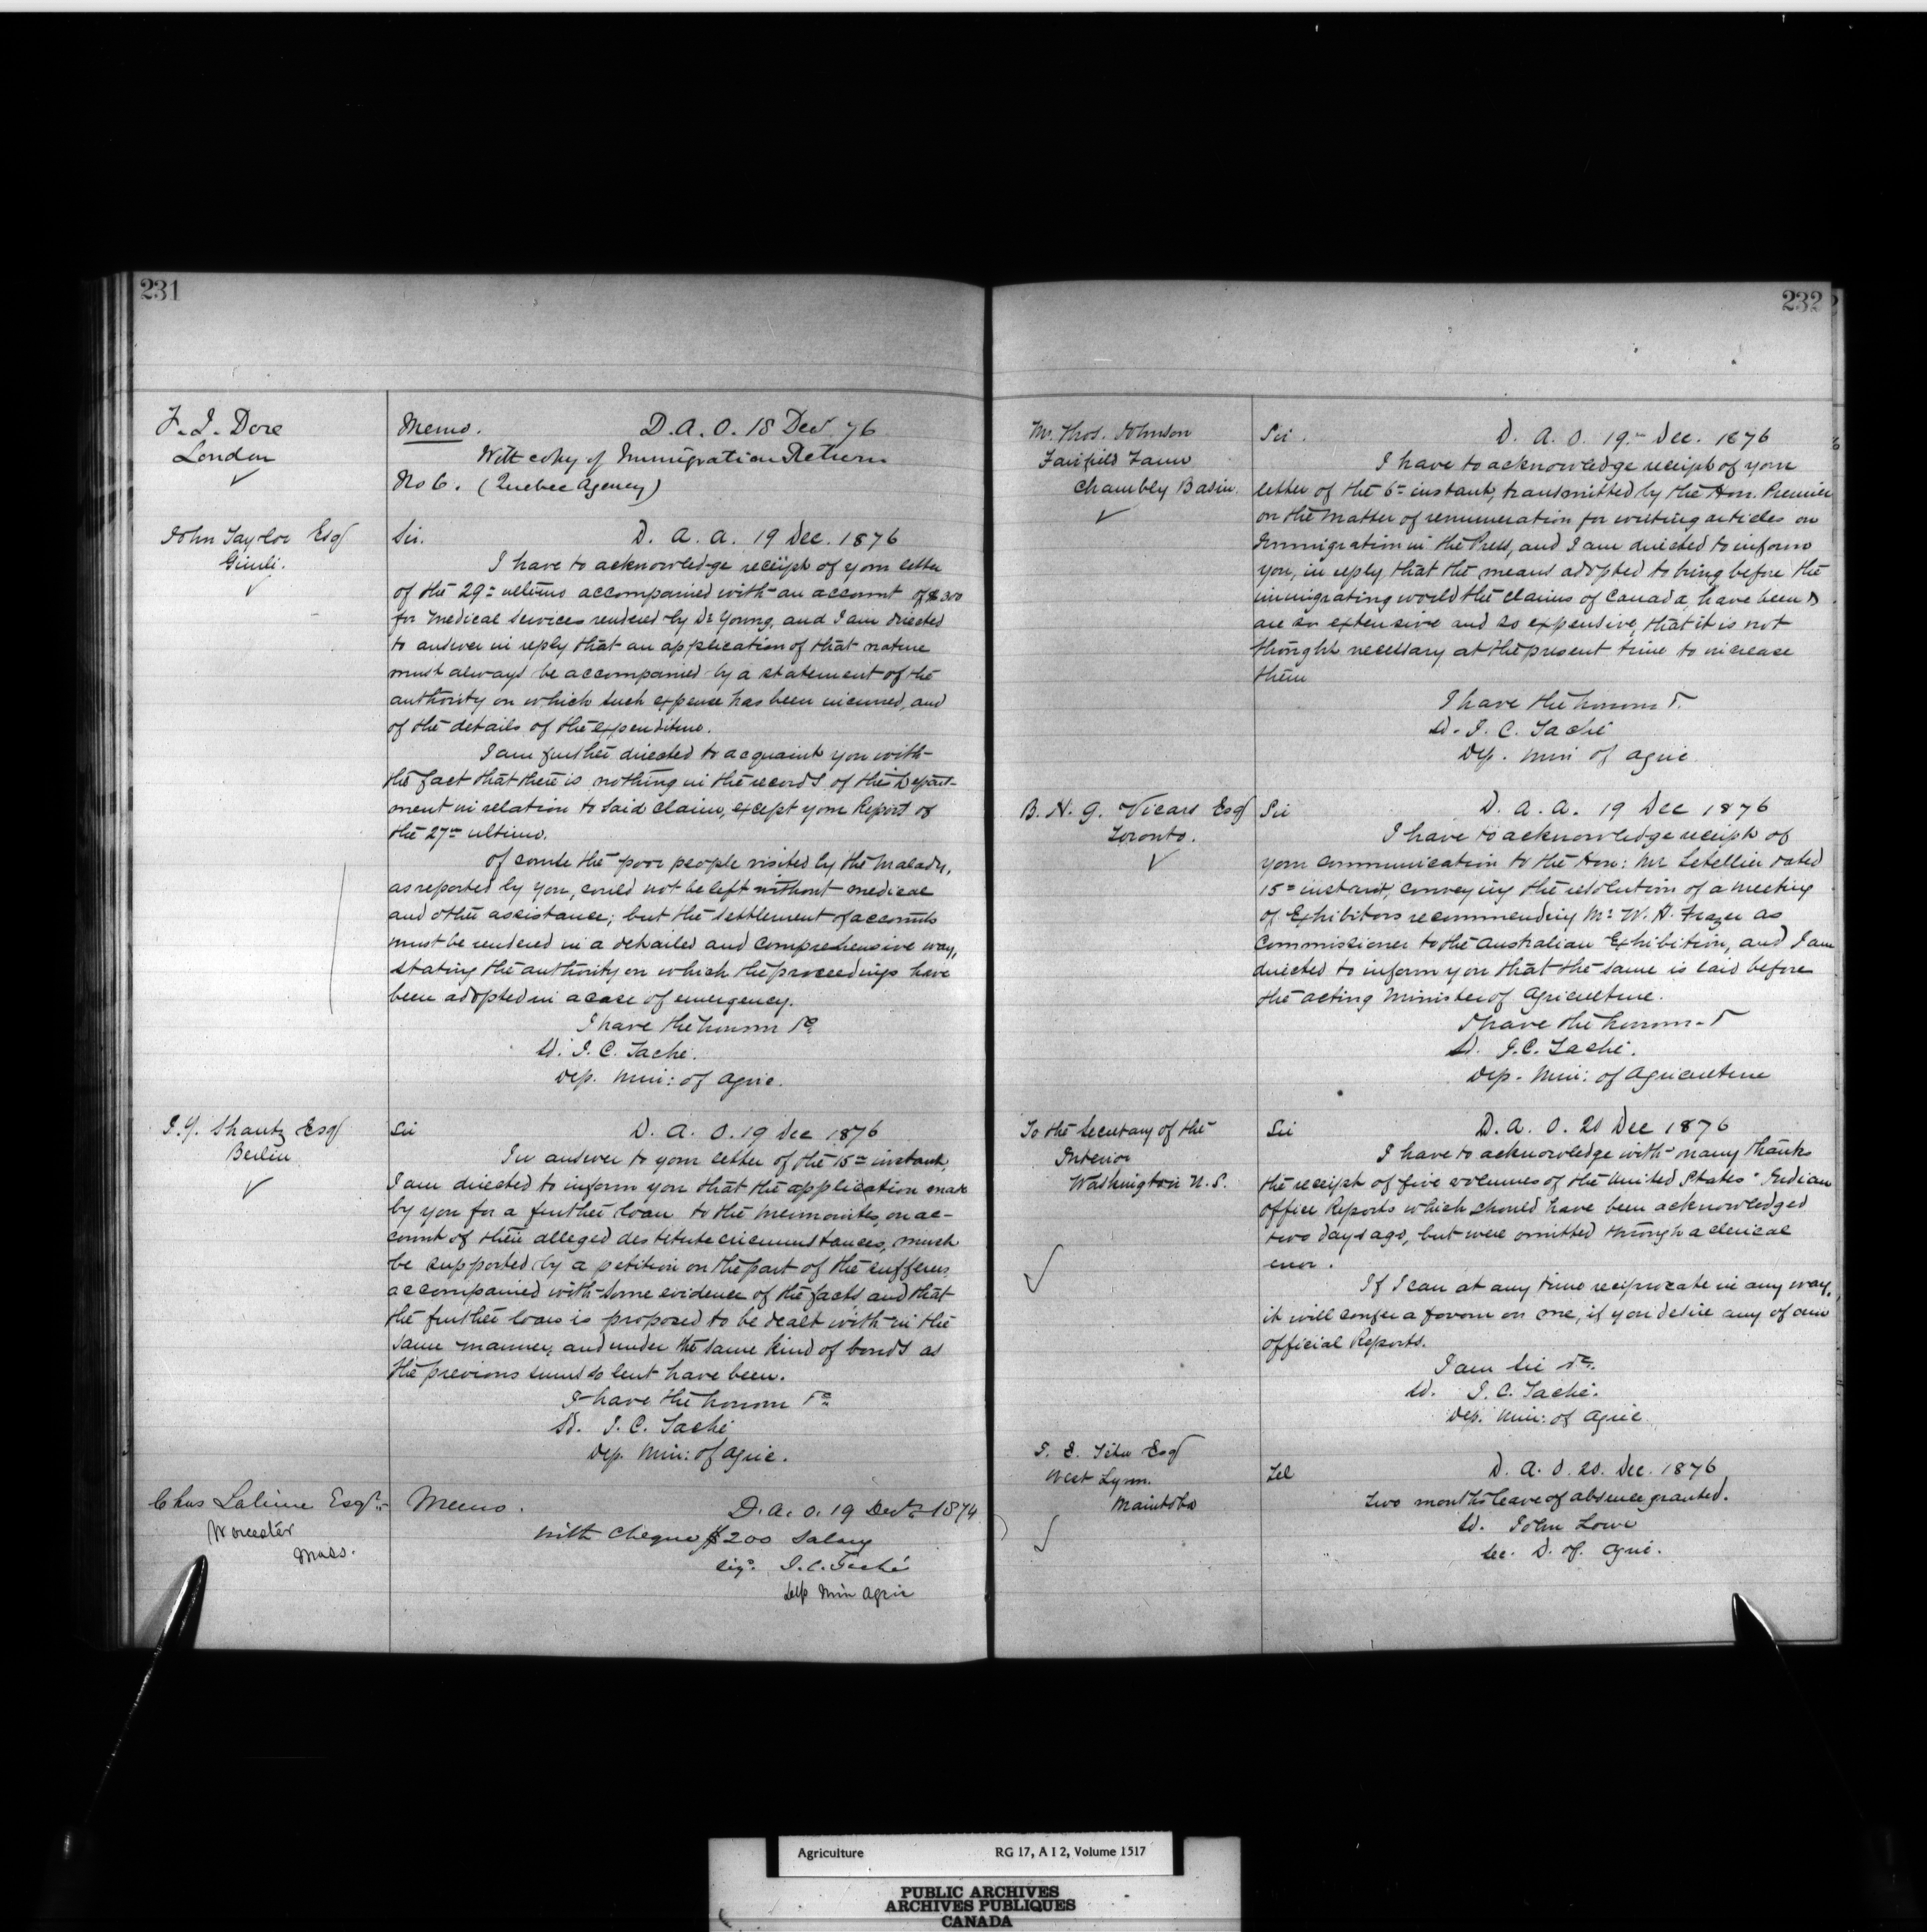 231
F. J. Dore
London
Memo. D. A. O. 18 Decr 76
With copy of Immigration Return
No 6. (Quebec Agency)
John Taylor Esq
Gimli.
Sir. D. A. A. 19 Dec. 1876
I have to acknowledge receipt of your letter
of the 29th ultimo accompanied with an account of $300
for medical services rendered by Dr Young, and I am directed
to answer in reply that an application of that nature
must always be accompanied by a statement of the
authority on which such expense has been incurred, and
of the details of the expenditure.
I am further directed to acquaint you with
the fact that there is nothing in the records of this Depart-
ment in relation to said claim, except your Report of
the 27th ultimo.
Of course the poor people visited by the malady,
as reported by you, could not be left without medical
and other assistance; but the settlement of accounts
must be rendered in a detailed and comprehensive way,
stating the authority on which the proceedings have
been adopted in a case of emergency.
I have the honour &c
Sd. J. C. Taché.
Dep. Min: of Agric.
J. Y. Shantz Esq
Berlin
Sir D. A. O. 19 Dec 1876
In answer to your letter of the 15th instant,
I am directed to inform you that the application made
by you for a further loan to the Mennonites, on ac-
count of their alleged destitute circumstances, must
be supported by a petition on the part of the sufferers
accompanied with some evidence of the facts and that
the further loan is proposed to be dealt with in the
same manner, and under the same kind of bonds as
the previous sums so lent have been.
I have the honour &c
Sd. J. C. Taché
Dep. Min: of Agric.
Chas Lalime Esqr.
Worcester
Mass.
Memo. D. A. O. 19 Decr 1874
With cheque $200 Salary
Sig. J. C. Taché
Dep Min Agric
232
Mr. Thos. Johnson
Fairfield Farm
Chambly Basin.
Sir. D. A. O. 19th Dec. 1876
I have to acknowledge receipt of your
letter of the 6th instant, transmitted by the Hon. Premier
on the matter of renumeration for writing articles on
Immigration in the Press, and I am directed to inform
you, in reply that the means adopted to bring before the
immigrating world the claims of Canada, have been &
are so extensive and so expensive, that it is not
thought necessary at the present time to increase
them
I have the honour &.
Sd. J. C. Taché
Dep. Min of Agric.
B. H. G. Vicars Esq
Toronto.
Sir D. A. A. 19 Dec 1876
I have to acknowledge receipt of
your communication to the Hon: Mr Letellier dated
15th instant, conveying the resolution of a meeting
of Exhibitors recommending Mr W. H. Frazer as
Commissioner to the Australian Exhibition, and I am
directed to inform you that the same is laid before
the acting Minister of Agriculture.
I have the honour &
Sd. J. C. Taché.
Dep. Min: of Agriculture
To the Secretary of the
Interior
Washington U. S.
Sir D. A. O. 20 Dec 1876
I have to acknowledge with many thanks
the receipt of five volumes of the United States' Indian
Office Reports which should have been acknowledged
two days ago, but were omitted through a clerical
error.
If I can at any time reciprocate in any way,
it will confer a favour on me, if you desire any of our
official Reports.
I am Sir &c.
Sd. J. C. Taché.
Dep. Min: of Agric.
J. E. Têtu Esq
West Lynn.
Manitoba
Tel D. A. O. 20. Dec. 1876
Two months leave of absence granted.
Sd. John Lowe
Sec. D. of. Agric.
Agriculture RG 17, A I 2, Volume 1517
PUBLIC ARCHIVES
ARCHIVES PUBLIQUES
CANADA